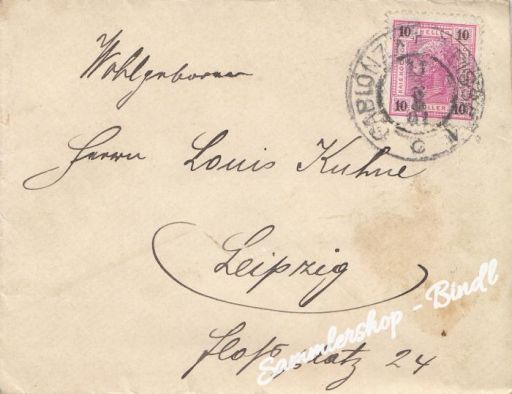 Wohlgeboren
Herrn Louis Kuhne
Leipzig
24
10 10
10 HELLER 10
GABLONZ
Sammlershop - Bindl